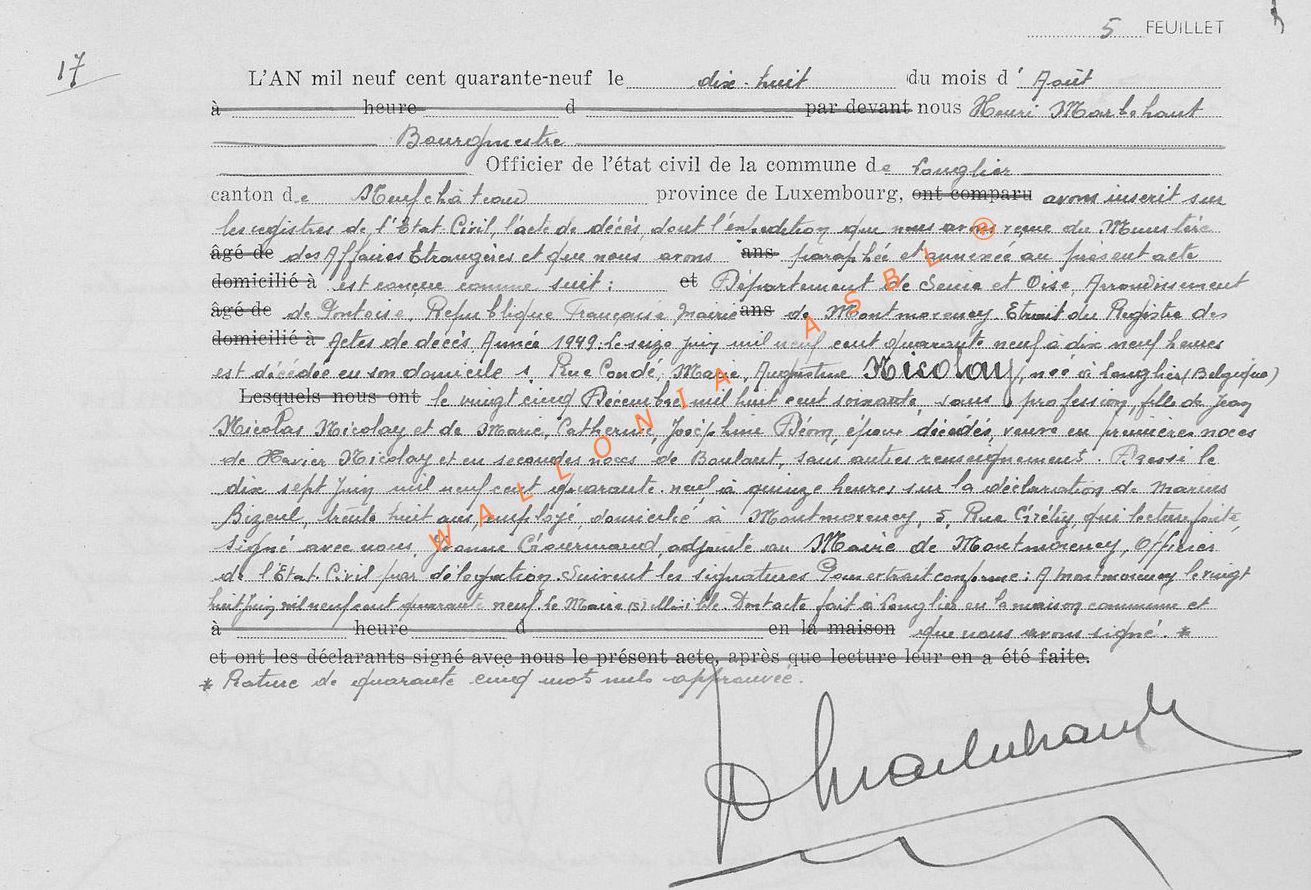 5 FEUILLET
17
L'AN mil neuf cent quarante-neuf le dix-huit du mois d' Août
à heure d par devant nous Henri Marbehant
Bourgmestre
Officier de l'état civil de la commune de Longlier
canton de Neufchâteau province de Luxembourg, ont comparu avons inscrit sur
les registres de l'Etat Civil, l'acte de décès, dont l'expédition que nous avons reçue du Ministère
âgé de des Affaires Etrangères et que nous avons ans paraphée et annexée au présent acte
domicilié à est conçue comme suit : et Département de Seine et Oise, Arrondissement
âgé de de Pontoise, République Française, Mairie ans de Montmorency. Extrait du Registre des
domicilié à Actes de décès, Année 1949. Le seize juin mil neuf cent quarante neuf à dix neuf heures
est décédée en son domicile 1, Rue Condé, Marie, Augustine Nicolay, née à Longlier (Belgique)
Lesquels nous ont le vingt cinq Décembre mil huit cent soixante, sans profession, fille de Jean
Nicolas Nicolay et de Marie, Catherine, Joséphine Péom, époux décédés, veuve en premières noces
de Xavier Nicolay et en secondes noces de Boulant, sans autres renseignements. Dressé le
dix sept Juin mil neuf cent quarante neuf à quinze heures sur la déclaration de Marius
Bizeul, trente huit ans, employé, domicilié à Montmorency, 5, Rue Grétry, qui lecture faite,
signé avec nous, Jeanne adjointe au Maire de Montmorency, Officier
de l'Etat Civil par délégation. Suivent les signatures Pour extrait conforme : A Montmorency le vingt
huit Juin mil neuf cent quarante neuf. Le Maire (s) illisible. Dont acte fait à Longlier en la maison commune et
à heure d en la maison que nous avons signé. *
et ont les déclarants signé avec nous le présent acte, après que lecture leur en a été faite.
* Rature de quarante cinq mots nuls approuvée.
H Marbehant
WALLONIA ASBL ®